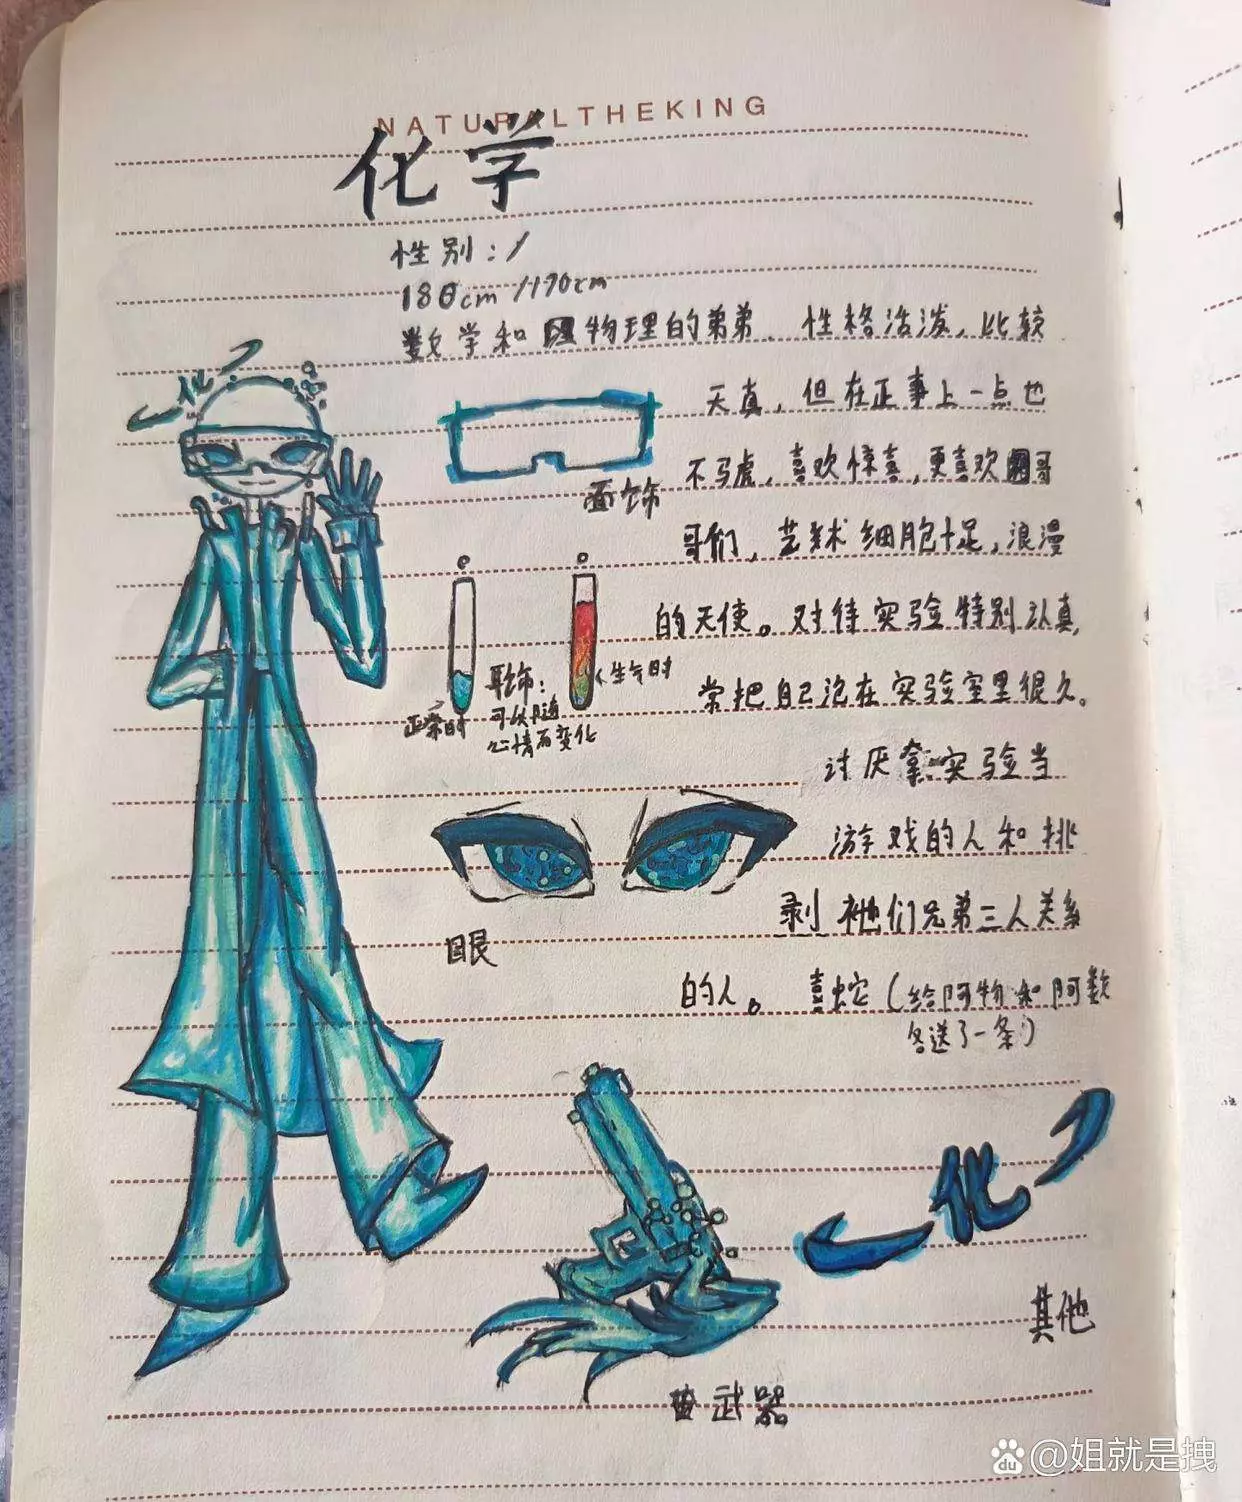 NATURALTHEKING
化学
性别：/
180cm/190cm
数学和物理的弟弟，性格活泼，比较
天真，但在正事上一点也
不马虎，喜欢惊喜，更喜欢哥
哥们，艺术细胞十足，浪漫
的天使。对待实验特别认真，
常把自己泡在实验室里很久。
讨厌拿实验当
游戏的人和挑
剥他们兄弟三人关系
的人。喜蛇（给阿物和阿数
各送了一条）
化
面饰
正常时
耳饰：
可以随
心情而变化
生气时
眼
武器
化
其他
du @姐就是拽